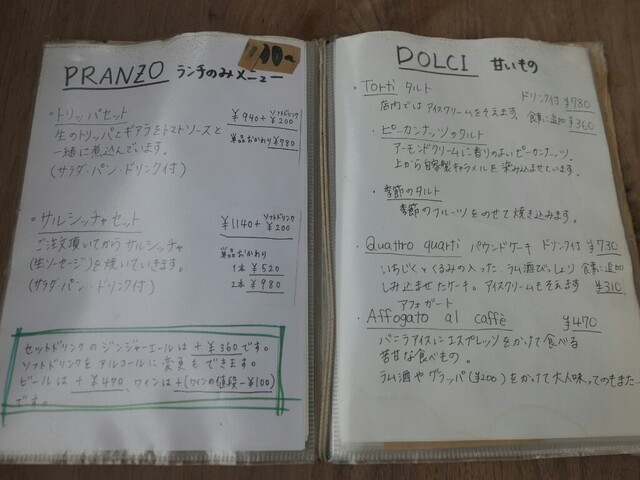 PRANZO ランチのみメニュー
・トリッパセット ¥940+ソフトドリンク¥200
生のトリッパとギアラをトマトソースと 単品おかわり¥780
一緒に煮込んでいます。
(サラダ・パン・ドリンク付)
・サルシッチャセット ¥1140+ソフトドリンク¥200
ご注文頂いてからサルシッチャ 単品おかわり
(生ソーセージ)を焼いていきます。 1本 ¥520
(サラダ・パン・ドリンク付) 2本 ¥980
セットドリンクのジンジャーエールは+¥360です。
ソフトドリンクをアルコールに変更もできます。
ビールは+¥470、ワインは+(ワインの値段-¥100)
です。
DOLCI 甘いもの
・Torti タルト ドリンク付 ¥780
店内ではアイスクリームをそえます。 食事に追加 ¥360
・ピーカンナッツのタルト
アーモンドクリームに香りのよいピーカンナッツ。
上から自家製キャラメルを染み込ませています。
・季節のタルト
季節のフルーツをのせて焼き込みます。
・Quattro quarti パウンドケーキ ドリンク付 ¥730
いちじくとくるみの入った、ラム酒びっしょり 食事に追加
しみ込ませたケーキ。アイスクリームもそえます ¥310
アフォガート
・Affogato al caffè ¥470
バニラアイスにエスプレッソをかけて食べる
苦甘な食べもの。
ラム酒やグラッパ(¥200)をかけて大人味ってのもまた…